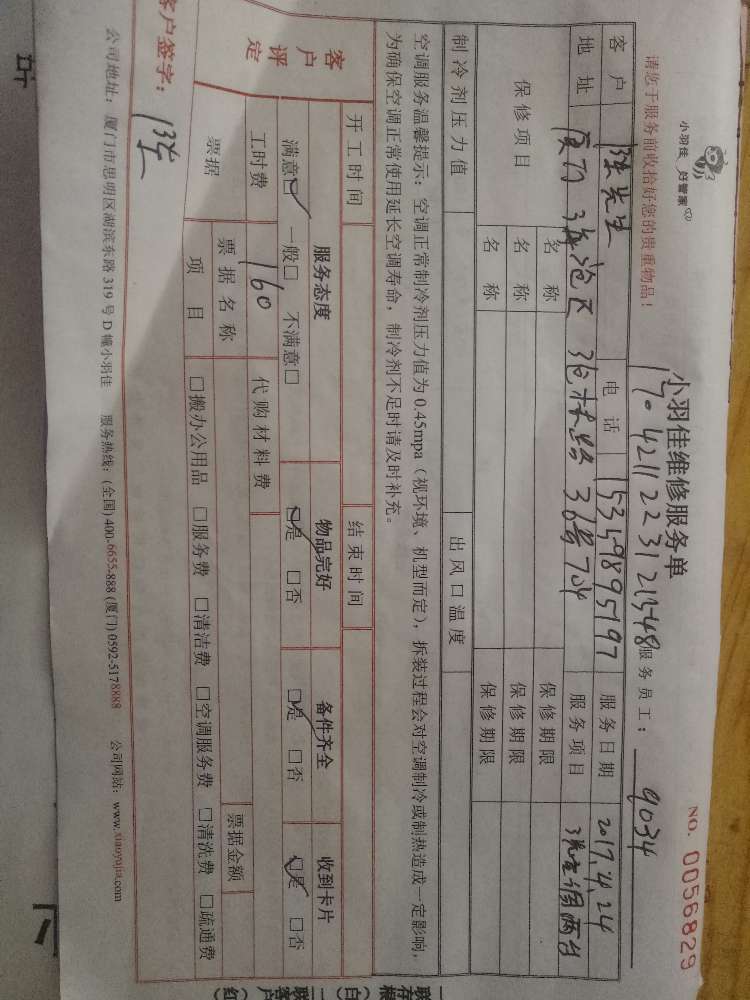 小羽佳 好管家
请您于服务前收拾好您的贵重物品！
小羽佳维修服务单
NO. 0056829
服务员工： 9034
客户 先生 电话 15349895197 服务日期 2017.4.24
地址 厦门 服务项目 空调两台
保修项目 名称 保修期限
名称 保修期限
名称 保修期限
制冷剂压力值 出风口温度
空调服务温馨提示：空调正常制冷剂压力值为0.45mpa（视环境、机型而定），拆装过程会对空调制冷或制热造成一定影响，
为确保空调正常使用延长空调寿命，制冷剂不足时请及时补充。
开工时间 结束时间
客户评定 服务态度 物品完好 备件齐全 收到卡片
满意☑ 一般□ 不满意□ ☑是 □否 ☑是 □否 ☑是 □否
工时费 160 代购材料费
票据 票据名称 票据金额
项目 □搬办公用品 □服务费 □清洁费 □空调服务费 □清洗费 □疏通费
客户签字：
公司地址：厦门市思明区湖滨东路319号D幢小羽佳 服务热线：(全国) 400-6655-888 (厦门) 0592-5178888 公司网站：www.xiaoyujia.com